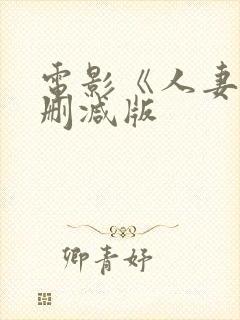 電影《人妻
刪減版
卿青妤